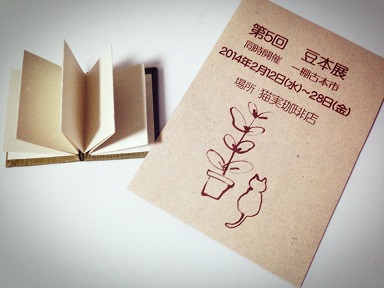 第5回 豆本展
同時開催 一棚古本市
2014年2月12日(水)~28日(金)
場所 猫実珈琲店